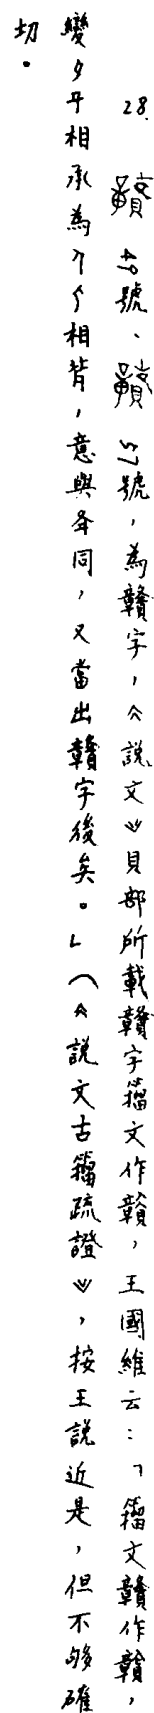 28. 40號、 57號，為贛字，《説文》貝部所載贛字籀文作贑，王國維云：「籀文贛作贑，
變夕㐄相承為相背，意與夅同，又當出贛字後矣。」（《説文古籀疏證》，按王説近是，但不够確
切。